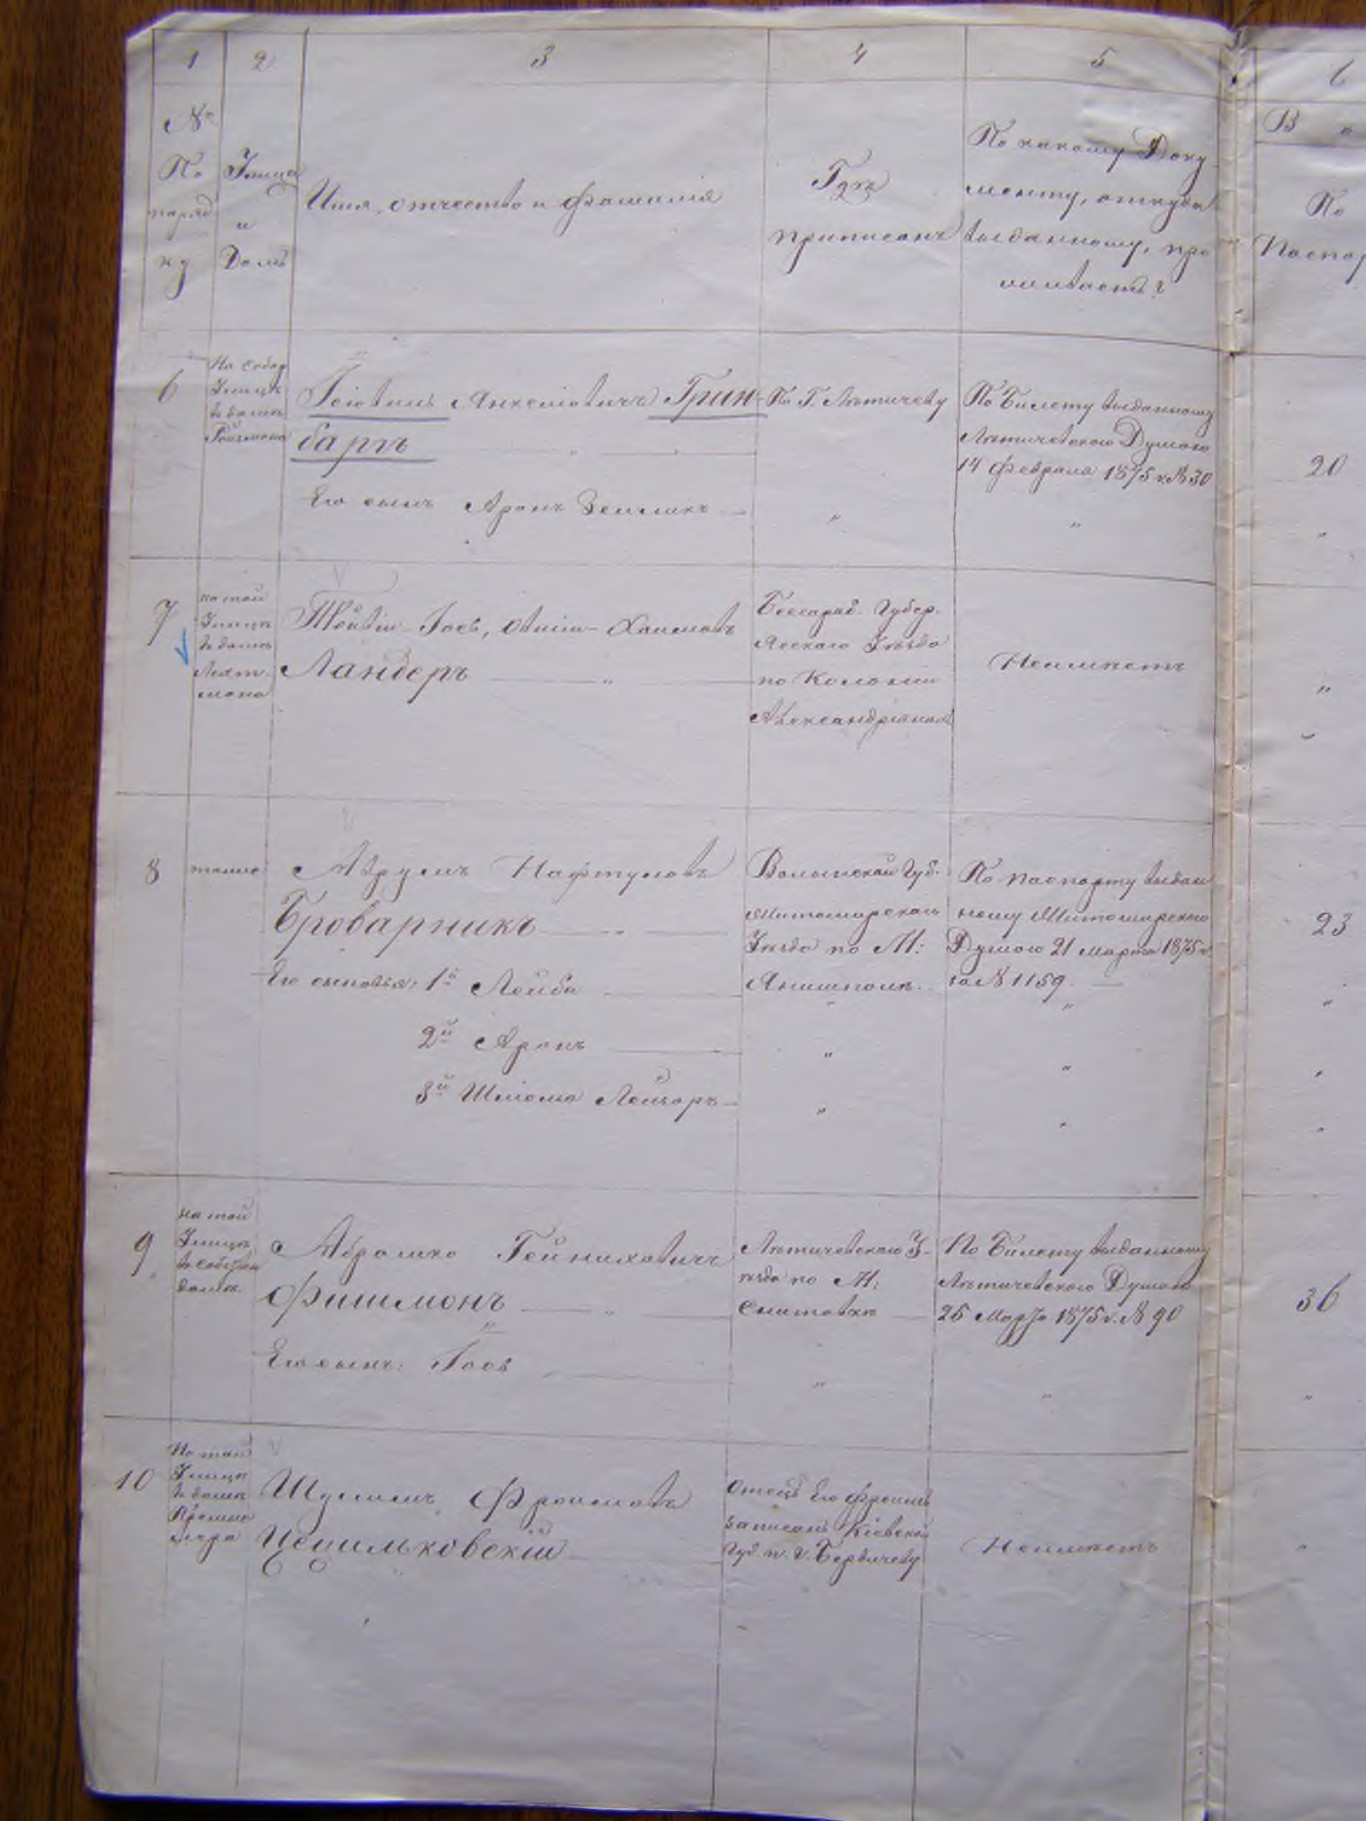 1 2 3 4 5 6
№
По
поряд
ку
Улица
и
Домъ
Имя, отчество и фамилія
Гдѣ
приписанъ
По какому Доку
менту, откуда
выданному, про
живаетъ?
В
По
Паспор
6
На Собор
Улицѣ
въ домѣ
Янкелевичъ Грин-
баргъ
Его сынъ Аронъ Зейликъ
По Г. Летичеву
По Билету выданному
Летичевскою Думою
14 Февраля 1875 г. № 30
20
7
на той
Улицѣ
въ домѣ
мана
Хаимовъ
Ландеръ
Бессараб. Губер.
Ясскаго Уѣзда
по Колоніи
Неимѣетъ
8
тоже
Аврумъ Нафтуловъ
Броварникъ
Его сыновья: 1й Лейба
2й Аронъ
3й Шліома Лейзоръ
Волынской Губ.
Житомирскаго
Уѣзда по М:
Янишполь
По паспорту выдан
ному Житомирскою
Думою 21 марта 1875 г.
за № 1159
23
9
на той
Улицѣ
въ собствен
домѣ
Абрамко Гейниховичъ
Фишмонъ
Его сынъ: Іосъ
Летичевскаго У-
ѣзда по М:
Снитовкѣ
По Билету выданному
Летичевскою Думою
25 Марта 1875 г. № 90
36
10
На той
Улицѣ
въ домѣ
Шулимъ Фроимовъ
Отецъ его Фроимъ
записанъ Кіевской
Губ. п. г. Бердичеву
Неимѣетъ